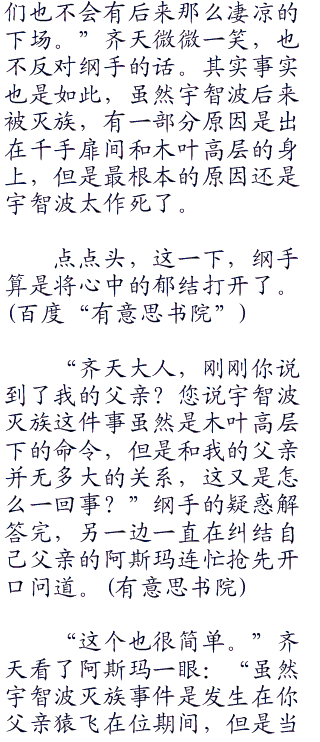 们也不会有后来那么凄凉的
下场。”齐天微微一笑，也
不反对纲手的话。其实事实
也是如此，虽然宇智波后来
被灭族，有一部分原因是出
在千手扉间和木叶高层的身
上，但是最根本的原因还是
宇智波太作死了。
点点头，这一下，纲手
算是将心中的郁结打开了。
(百度“有意思书院”)
“齐天大人，刚刚你说
到了我的父亲？您说宇智波
灭族这件事虽然是木叶高层
下的命令，但是和我的父亲
并无多大的关系，这又是怎
么一回事？”纲手的疑惑解
答完，另一边一直在纠结自
己父亲的阿斯玛连忙抢先开
口问道。(有意思书院)
“这个也很简单。”齐
天看了阿斯玛一眼：“虽然
宇智波灭族事件是发生在你
父亲猿飞在位期间，但是当